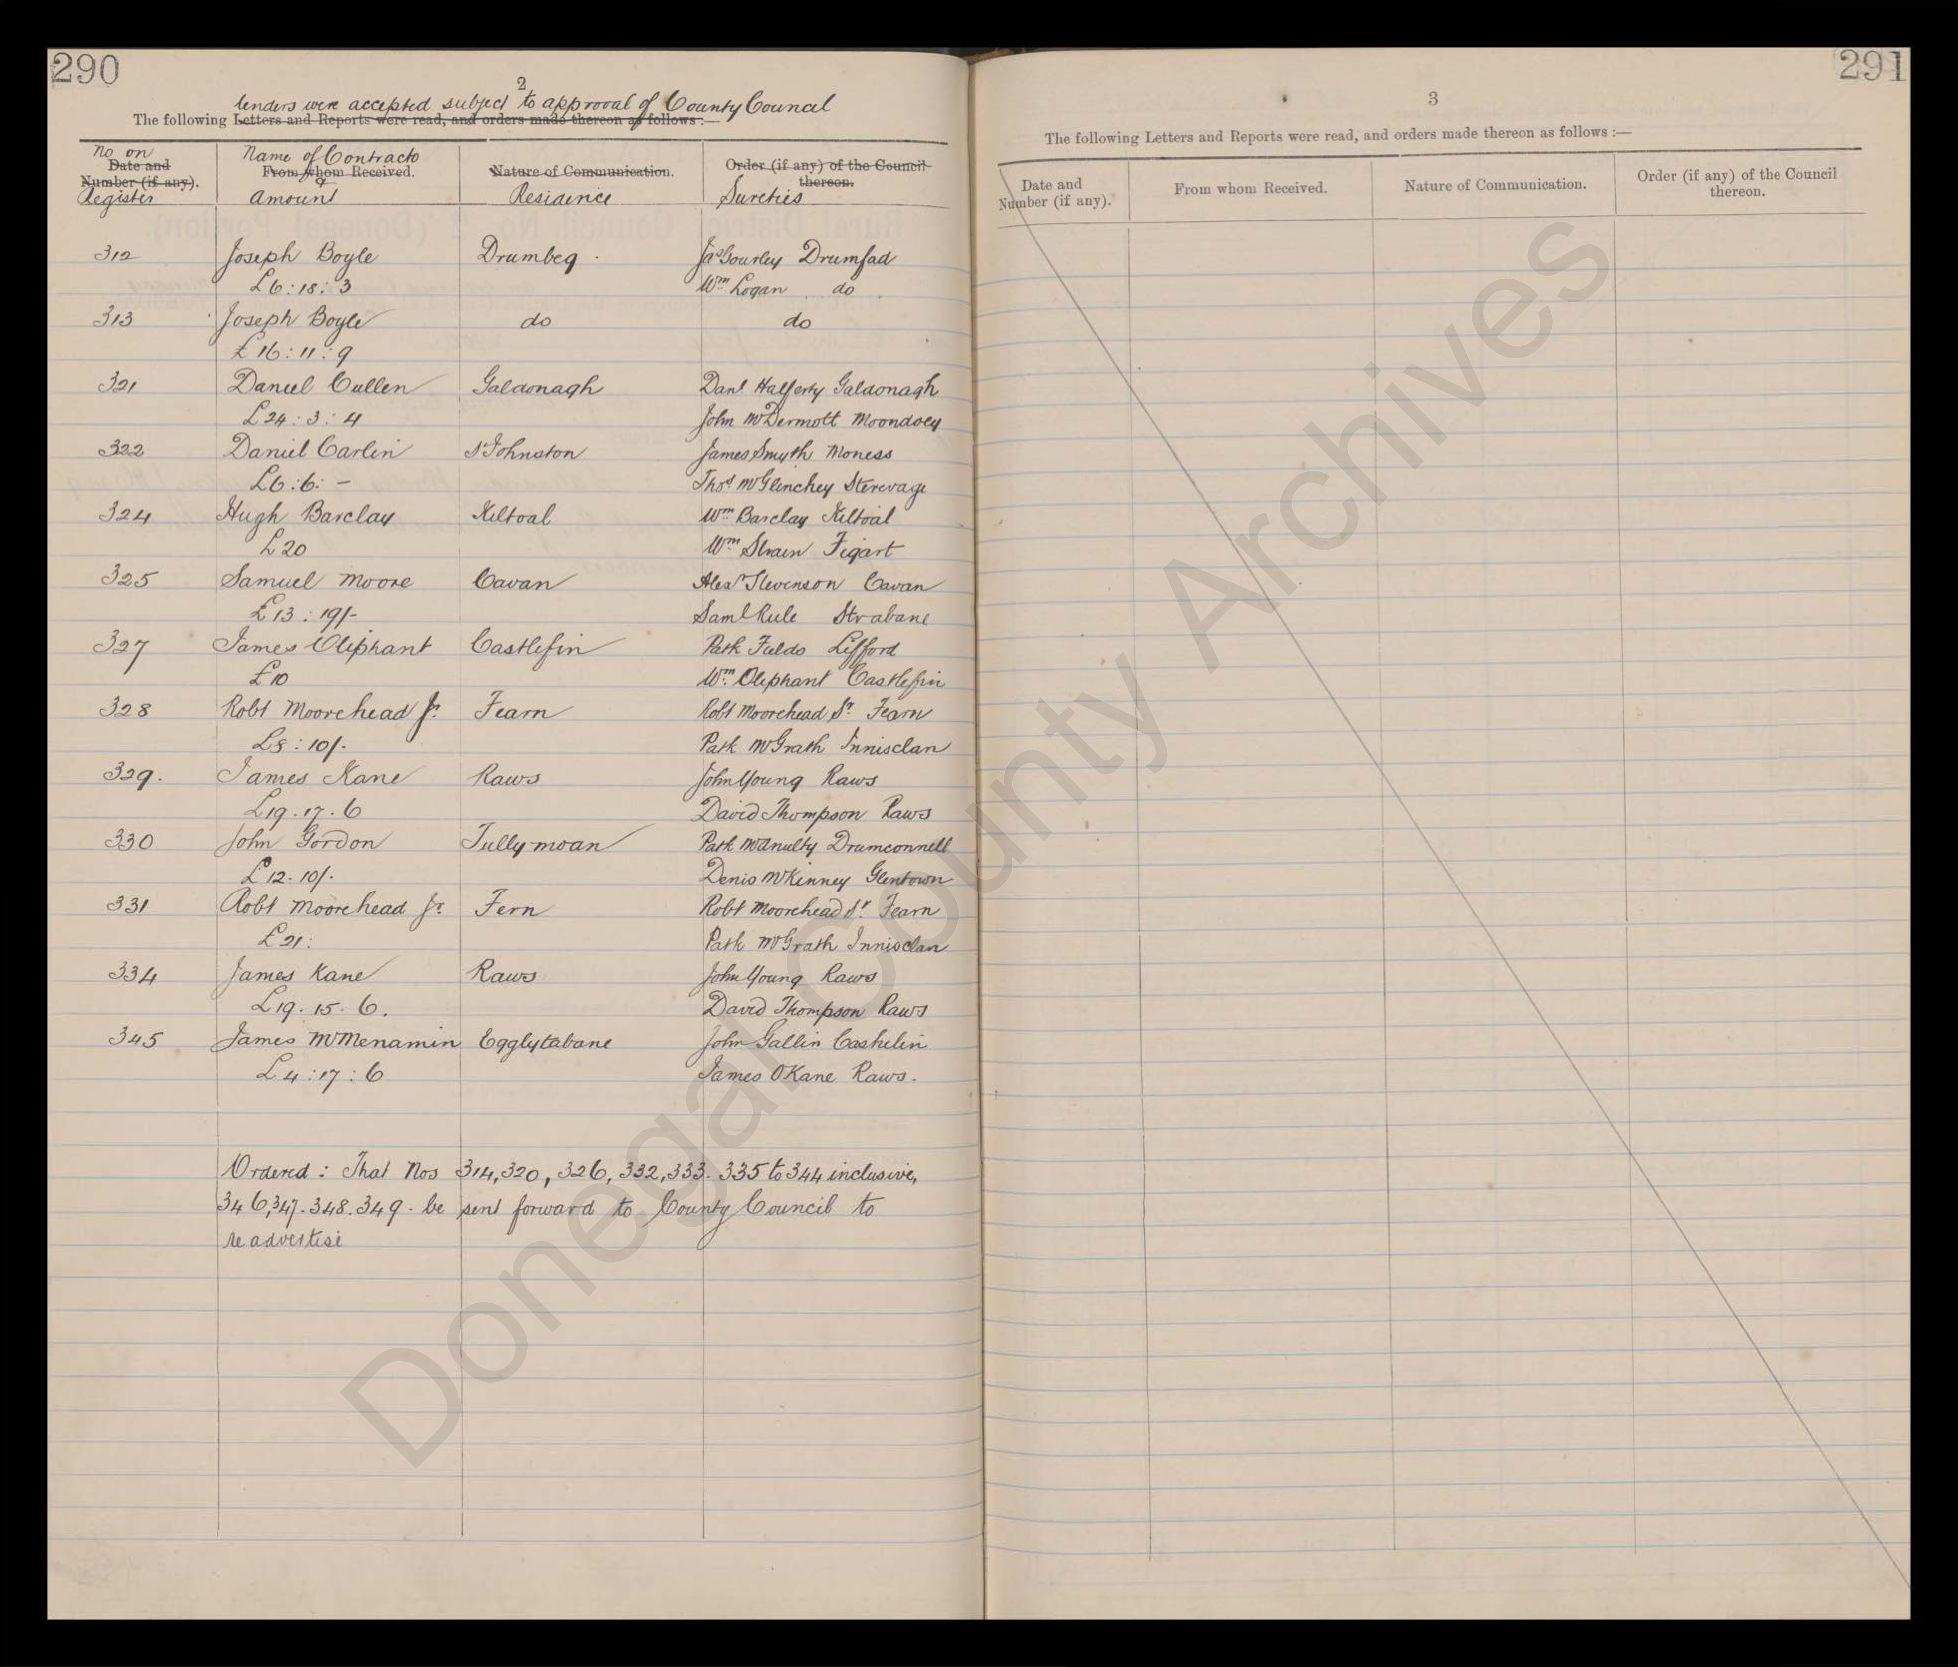 290
2
tenders were accepted subject to approval of County Council
The following Letters and Reports were read, and orders made thereon as follows :—
No on Name of Contracto
Date and From whom Received. Nature of Communication. Order (if any) of the Council
Number (if any). & thereon.
Register Amount Residence Sureties
312 Joseph Boyle Drumbeg Jas Gourley Drumfad
£6:18:3 Wm Logan do
313 Joseph Boyle do do
£16:11:9
321 Daniel Cullen Galdonagh Danl Halferty Galdonagh
£24:3:4 John McDermott Moondoey
322 Daniel Carlin St Johnston James Smyth Moness
£6:6:- Thos McGlinchey
324 Hugh Barclay Kiltoal Wm Barclay Kiltoal
£20 Wm Strain Figart
325 Samuel Moore Cavan Alexr Stevenson Cavan
£13:19/- Saml Rule Strabane
327 James Oliphant Castlefin Patk Fields Lifford
£10 Wm Oliphant Castlefin
328 Robt Moorehead Jr. Fearn Robt Moorehead Sr. Fearn
£8:10/- Patk McGrath Innisclan
329. James Kane Raws John Young Raws
£19.17.6 David Thompson Raws
330 John Gordon Tullymoan Patk McAnulty Drumconnell
£12.10/- Denis McKinney Glentown
331 Robt Moorehead Jr. Fern Robt Moorehead Sr. Fearn
£21: Patk McGrath Innisclan
334 James Kane Raws John Young Raws
£19.15.6. David Thompson Raws
345 James McMenamin Egglytabane John Gallin Cashelin
£4:17:6 James OKane Raws.
Ordered: That Nos 314, 320, 326, 332, 333. 335 to 344 inclusive,
346, 347. 348. 349. be sent forward to County Council to
re advertise
291
3
The following Letters and Reports were read, and orders made thereon as follows :—
Date and From whom Received. Nature of Communication. Order (if any) of the Council
Number (if any). thereon.
Donegal County Archives